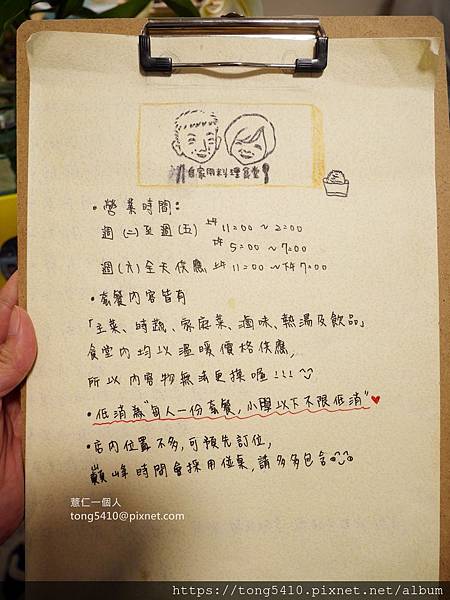 自家用料理食堂
•營業時間:
週(二)至週(五) 上午11:00~2:00
下午5:00~7:00
週(六)全天供應 上午11:00~下午7:00
•套餐內容皆有
「主菜、時蔬、家庭菜、滷味、熱湯及飲品」
食堂內均以溫暖價格供應,
所以內容物無法更換喔!!!
•低消為"每人一份套餐,小學以下不限低消"
•店內位置不多,可預先訂位,
巔峰時間會採用併桌,請多多包含
薏仁一個人
tong5410@pixnet.com
https://tong5410.pixnet.net/album